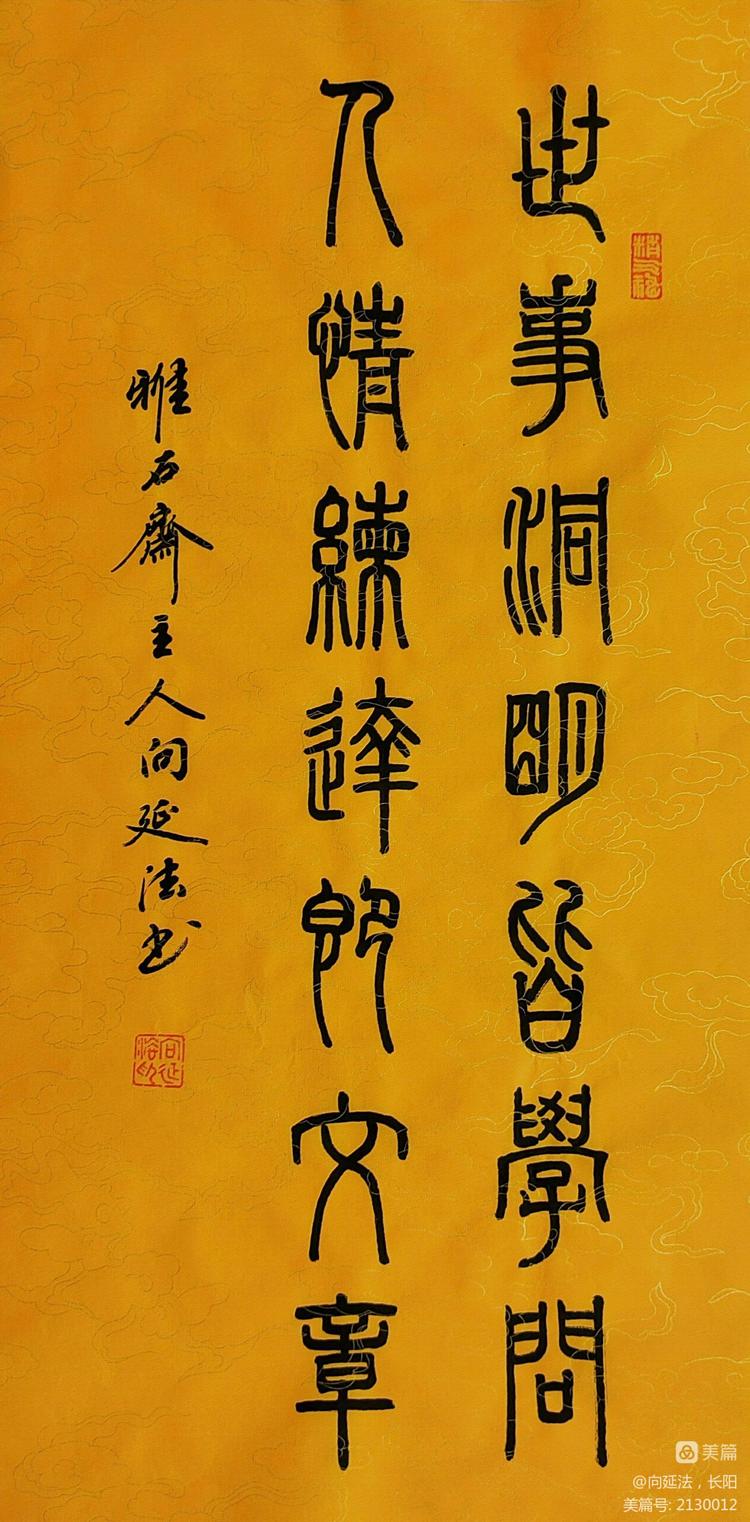 世事洞明皆學問
人情練達即文章
雅石齋主人向延法书
美篇
@向延法，长阳
美篇号: 2130012